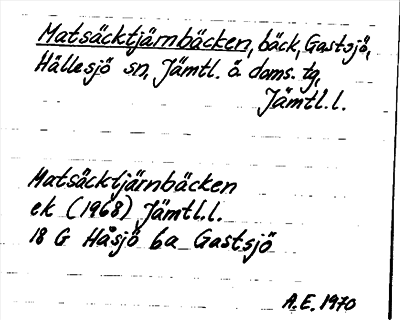 Matsäcktjärnbäcken, bäck, Gastsjö,
Hällesjö sn, Jämtl. ö. doms. tg,
Jämtl.l.
Matsäcktjärnbäcken
ek (1968) Jämtl.l.
18 G Håsjö 6a Gastsjö
A.E. 1970